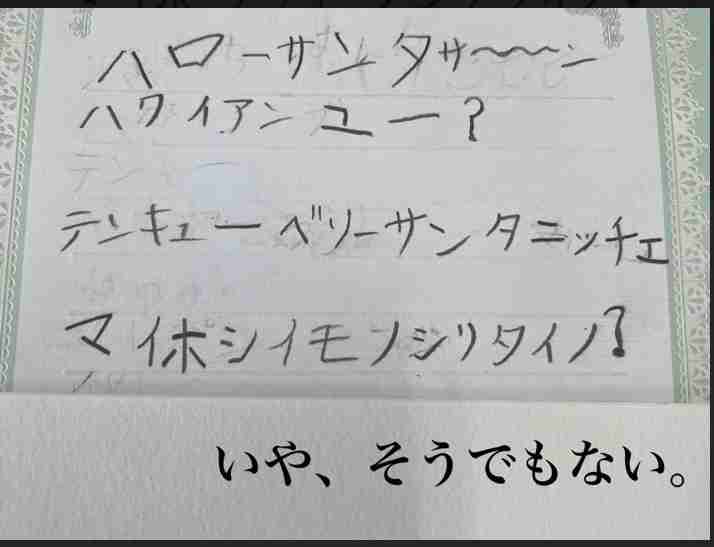 ハローサンタサ〜〜〜ン
ハワイアンユー?
テンキューベリーサンタニッチェ
マイポシイモノシリタイノ?
いや、そうでもない。